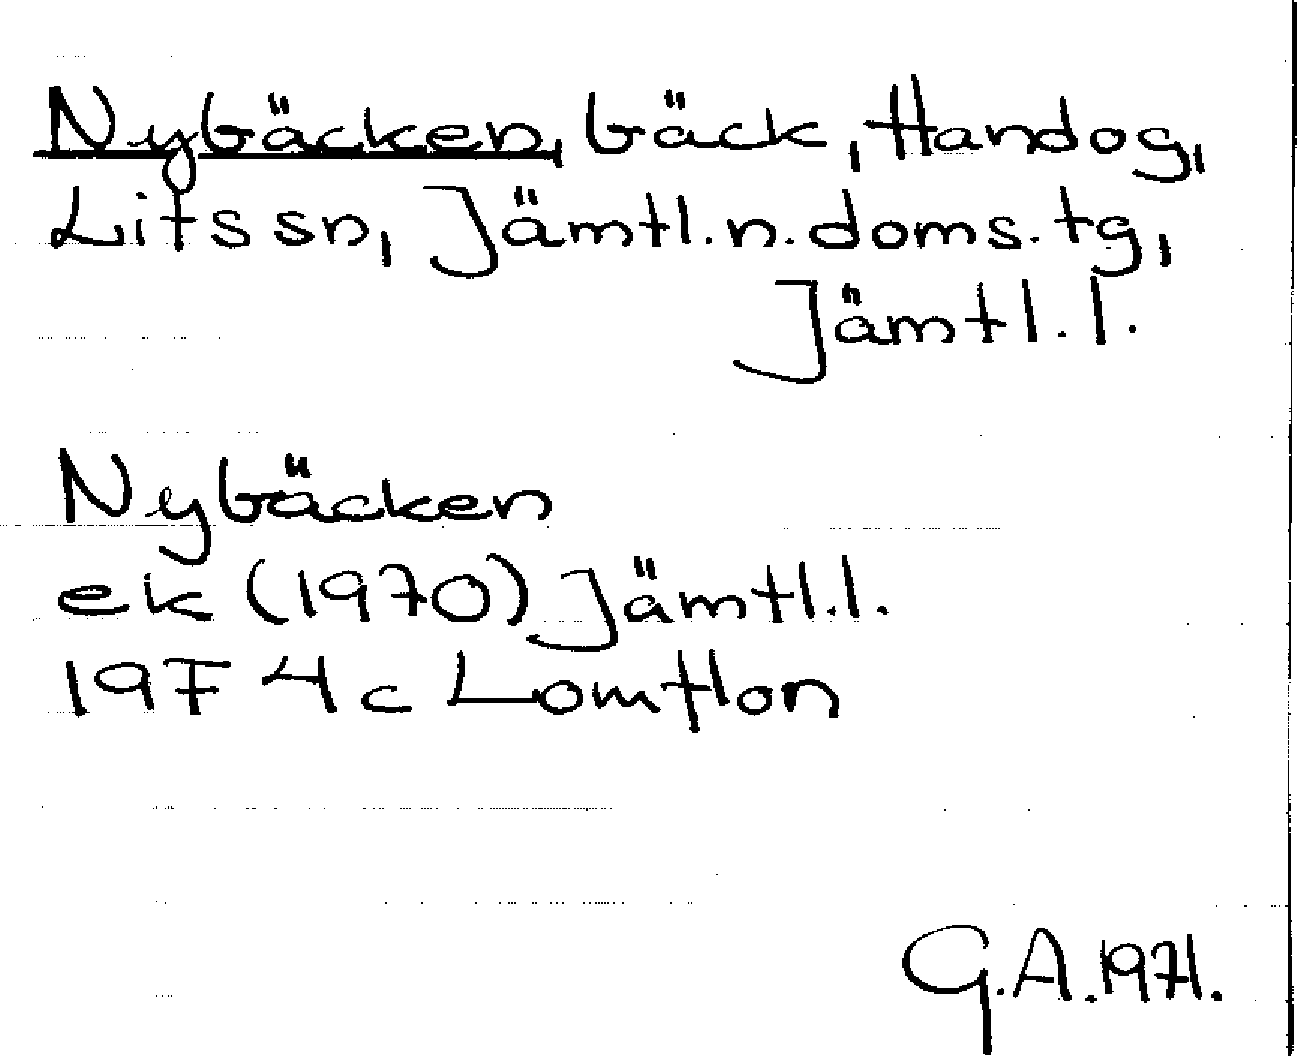 Nybäcken, bäck, Handog,
Lits sn, Jämtl. n. doms. tg,
Jämtl. l.
Nybäcken
ek (1970) Jämtl. l.
19F 4c Lomtlon
G.A. 1971.